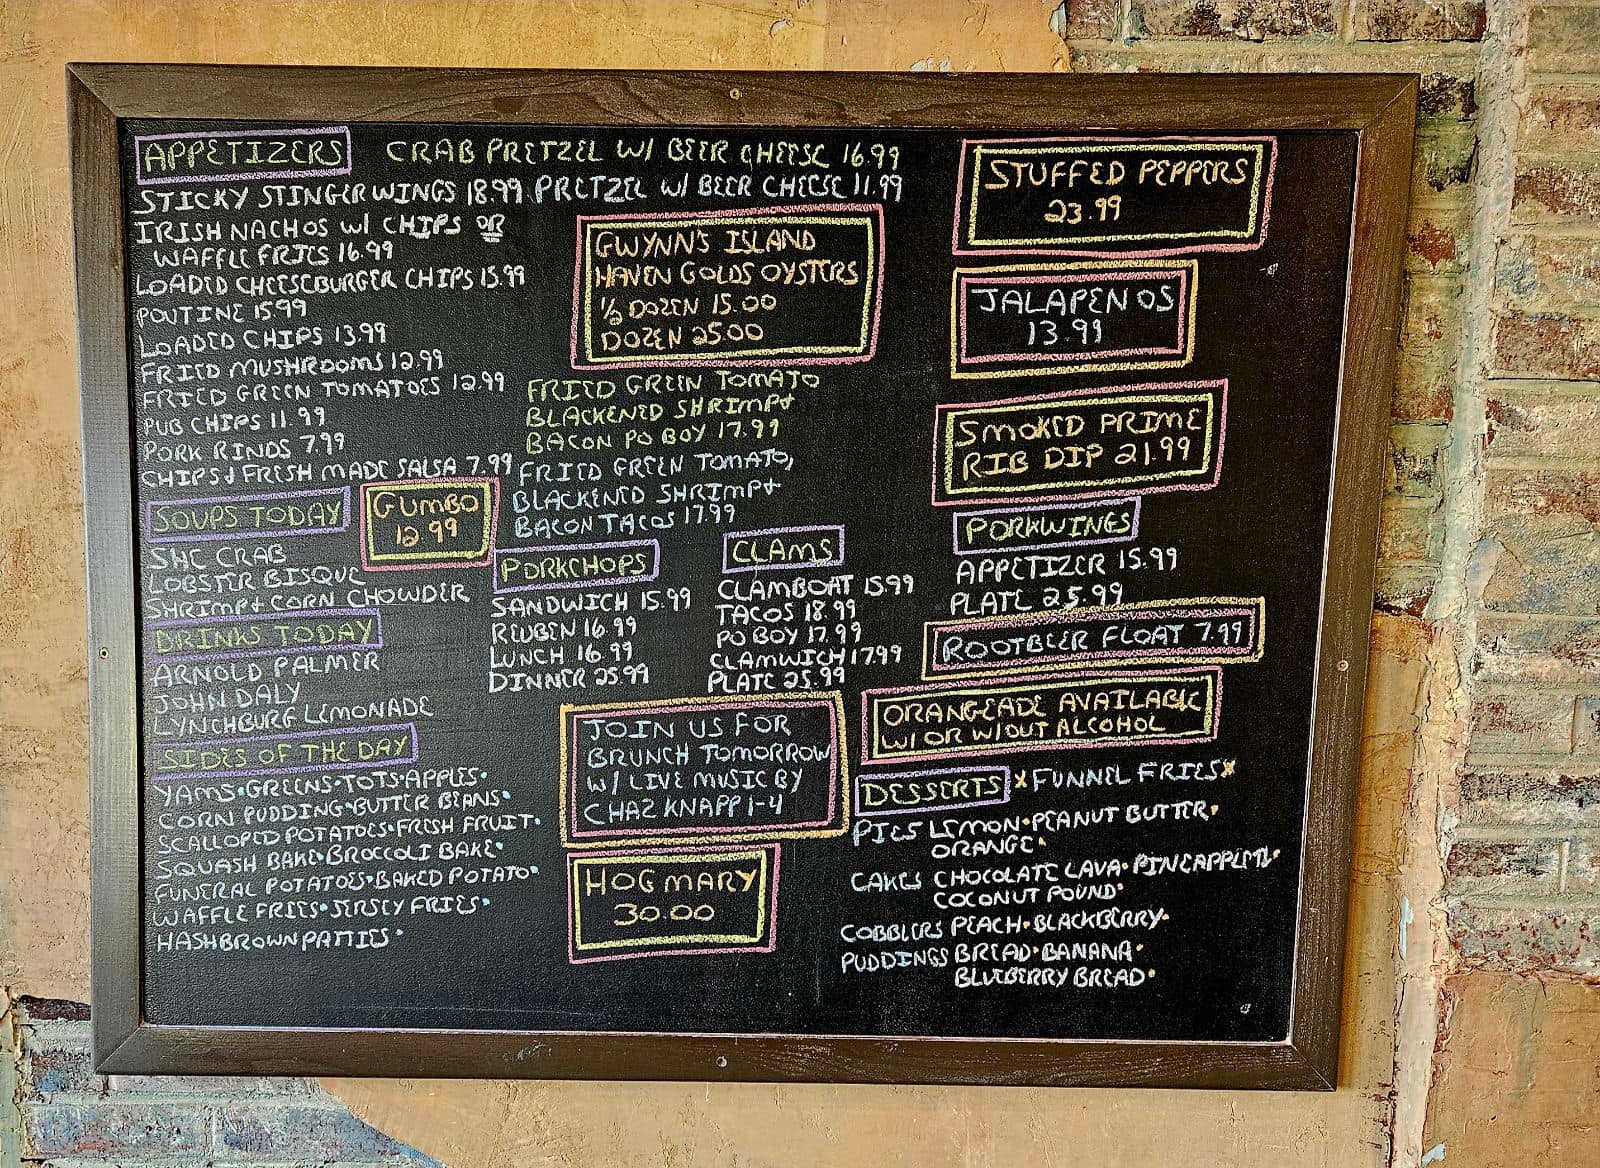 APPETIZERS
CRAB PRETZEL W/ BEER CHEESE 16.99
STICKY STINGER WINGS 18.99 PRETZEL W/ BEER CHEESE 11.99
IRISH NACHOS W/ CHIPS OR
WAFFLE FRIES 16.99
LOADED CHEESEBURGER CHIPS 15.99
POUTINE 15.99
LOADED CHIPS 13.99
FRIED MUSHROOMS 12.99
FRIED GREEN TOMATOES 12.99
PUB CHIPS 11.99
PORK RINDS 7.99
CHIPS & FRESH MADE SALSA 7.99
GWYNN'S ISLAND
HAVEN GOLDS OYSTERS
1/2 DOZEN 15.00
DOZEN 25.00
FRIED GREEN TOMATO
BLACKENED SHRIMP &
BACON PO BOY 17.99
FRIED GREEN TOMATO,
BLACKENED SHRIMP &
BACON TACOS 17.99
STUFFED PEPPERS
23.99
JALAPENOS
13.99
SMOKED PRIME
RIB DIP 21.99
SOUPS TODAY
GUMBO
12.99
SHE CRAB
LOBSTER BISQUE
SHRIMP & CORN CHOWDER
DRINKS TODAY
ARNOLD PALMER
JOHN DALY
LYNCHBURG LEMONADE
SIDES OF THE DAY
YAMS·GREENS·TOTS·APPLES·
CORN PUDDING·BUTTER BEANS·
SCALLOPED POTATOES·FRESH FRUIT·
SQUASH BAKE·BROCCOLI BAKE·
FUNERAL POTATOES·BAKED POTATO·
WAFFLE FRIES·JERSEY FRIES·
HASHBROWN PATTIES·
PORKCHOPS
SANDWICH 15.99
REUBEN 16.99
LUNCH 16.99
DINNER 25.99
CLAMS
CLAMBOAT 15.99
TACOS 18.99
PO BOY 17.99
CLAMWICH 17.99
PLATE 25.99
JOIN US FOR
BRUNCH TOMORROW
W/ LIVE MUSIC BY
CHAZ KNAPP 1-4
HOG MARY
30.00
PORKWINGS
APPETIZER 15.99
PLATE 25.99
ROOTBEER FLOAT 7.99
ORANGEADE AVAILABLE
W/ OR W/OUT ALCOHOL
DESSERTS *FUNNEL FRIES*
PIES LEMON·PEANUT BUTTER·
ORANGE·
CAKES CHOCOLATE LAVA·
COCONUT POUND·
COBBLERS PEACH·BLACKBERRY·
PUDDINGS BREAD·BANANA·
BLUEBERRY BREAD·